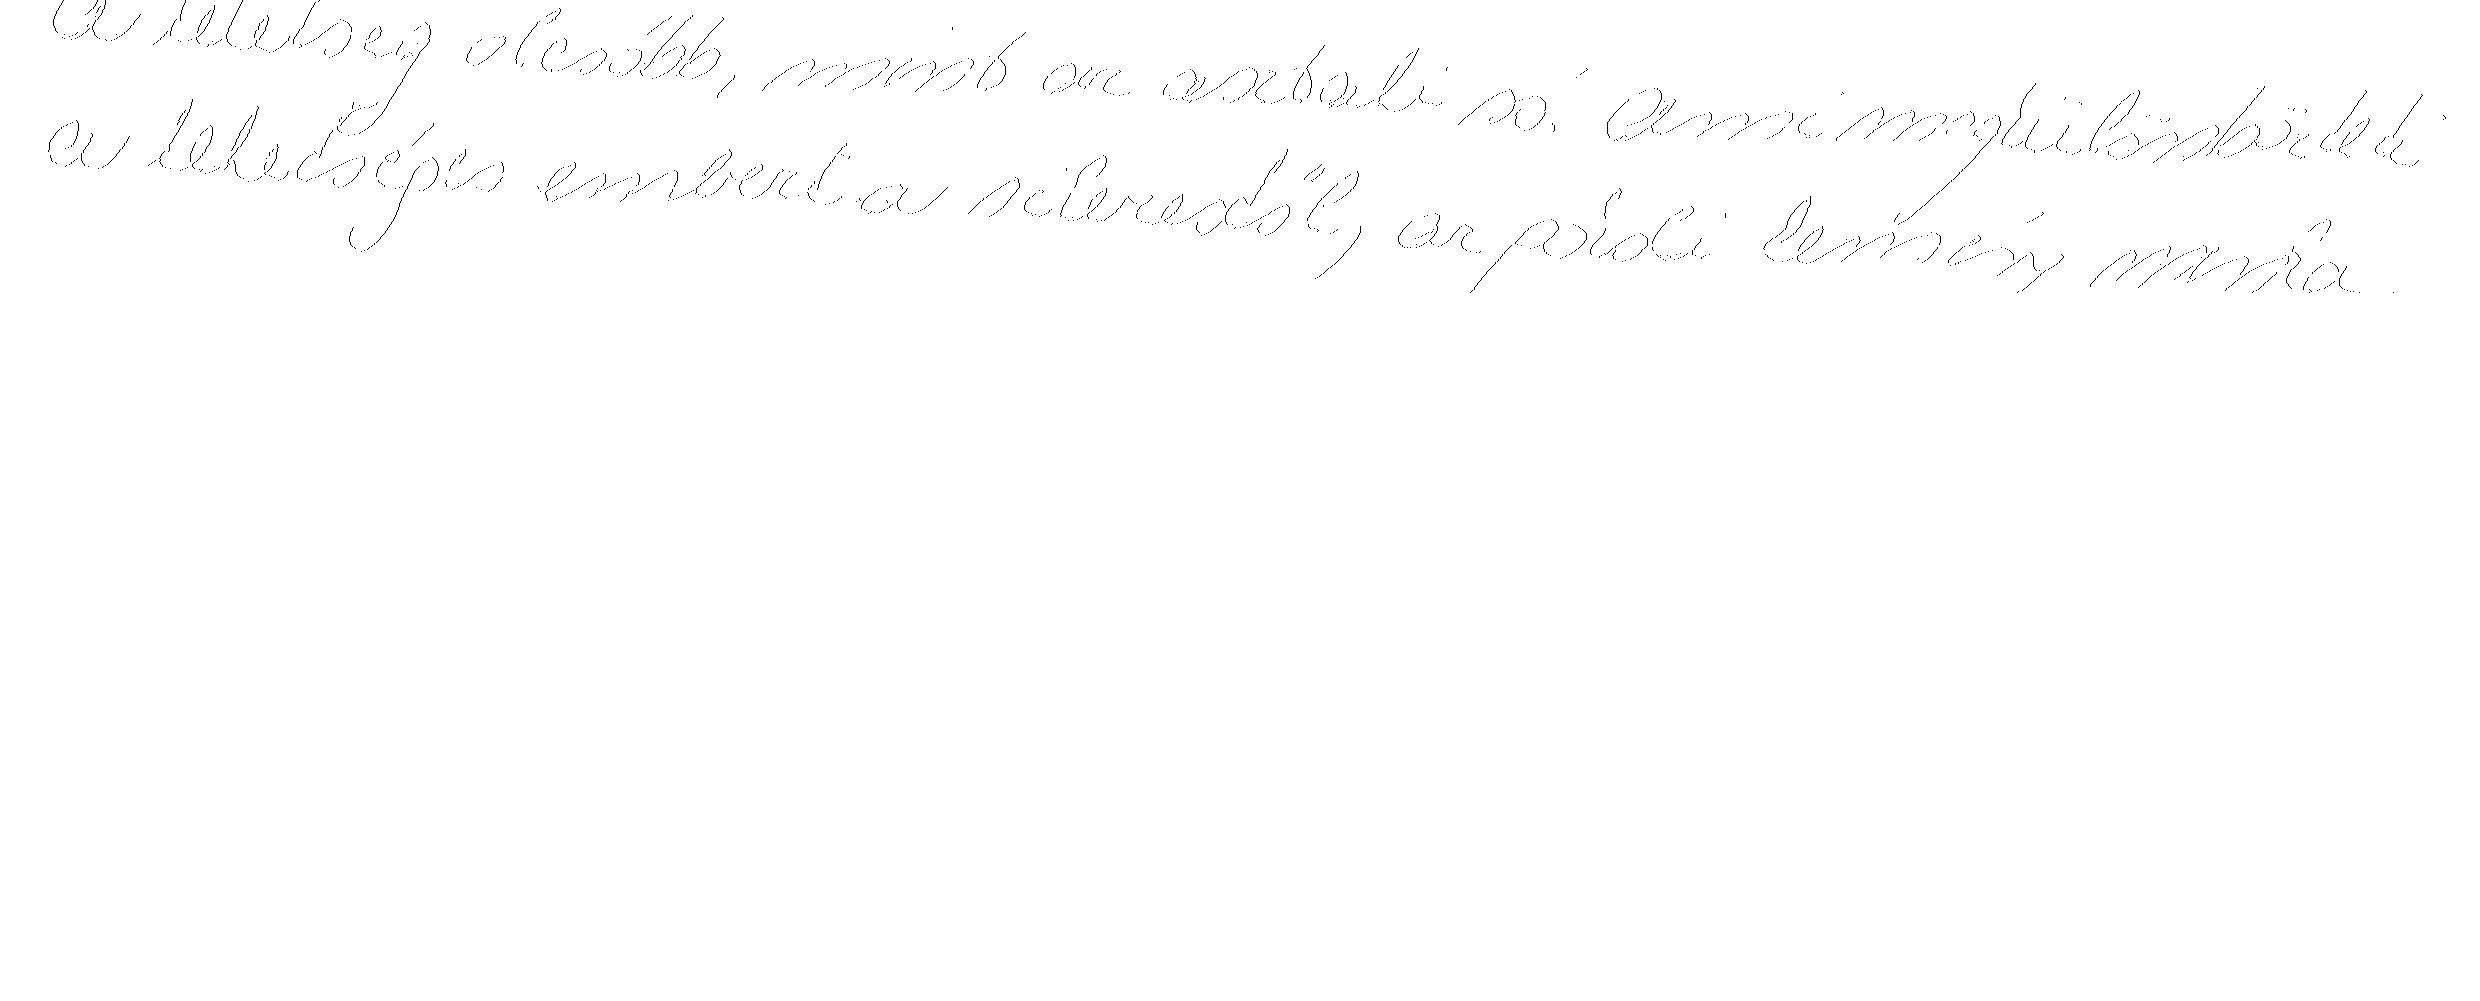 A tehetség olcsóbb, mint az asztali só. Ami megkülönbözteti
a tehetséges embert a sikerestől, az pedig kemény munka.